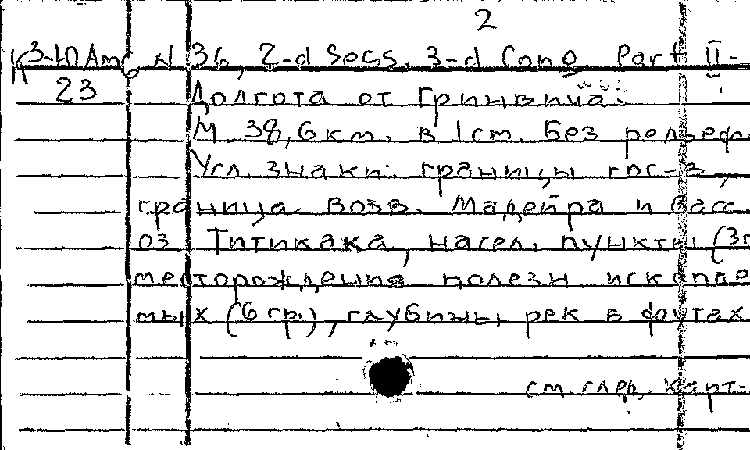 2
К 3-Ю Am, N 36, 2-d Sess. 3-d Cong Part II-
23 Долгота от Гринвича.
М 38,6 км. в 1 см. Без рельефа
Усл. знаки: границы гос-в,
граница возв. Мадейра и басс.
оз Титикака, насел. пункты (3г
месторождения полезн ископае
мых (6 гр.), глубины рек в футах
см. след. карт-